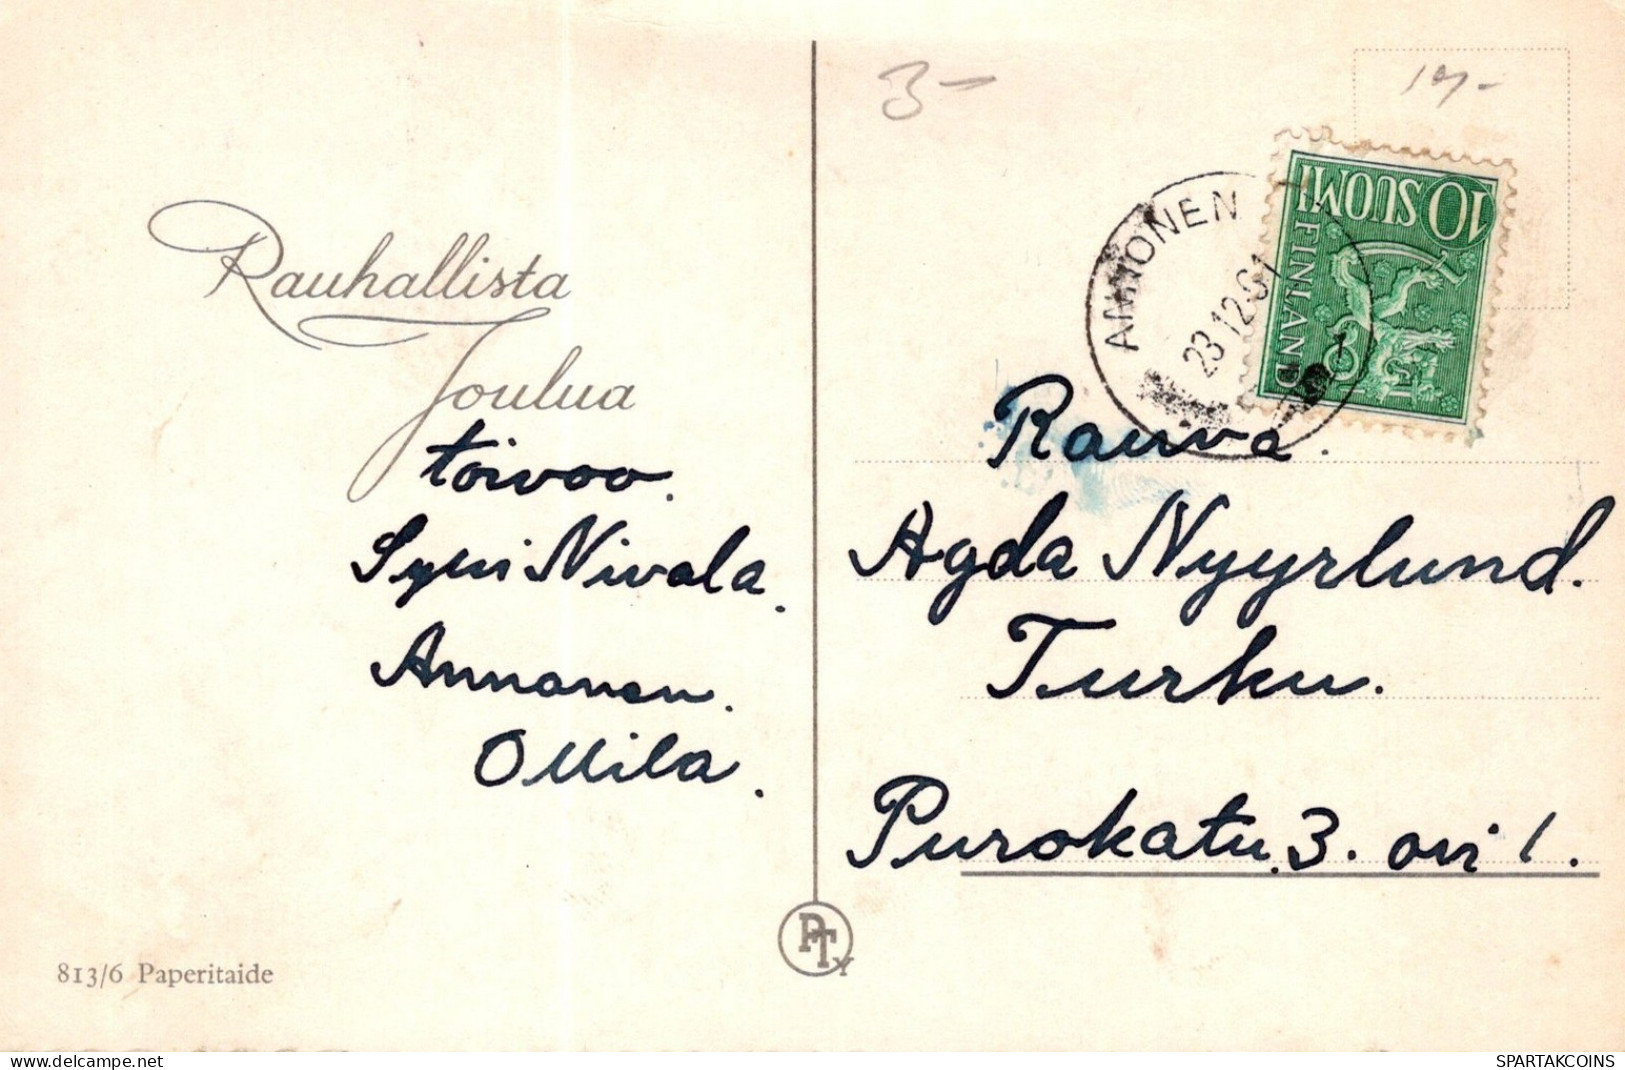 Rauhallista
Joulua
toivoo.
Nivala.
Annonen.
Ollila.
813/6 Paperitaide
PTy
3-
10 SUOMI
FINLAND
ANNONEN
23.12.61
1
Rouva.
Agda Nyyrlund.
Turku.
Purokatu 3. ovi 1.
delcampe.net
SPARTAKCOINS